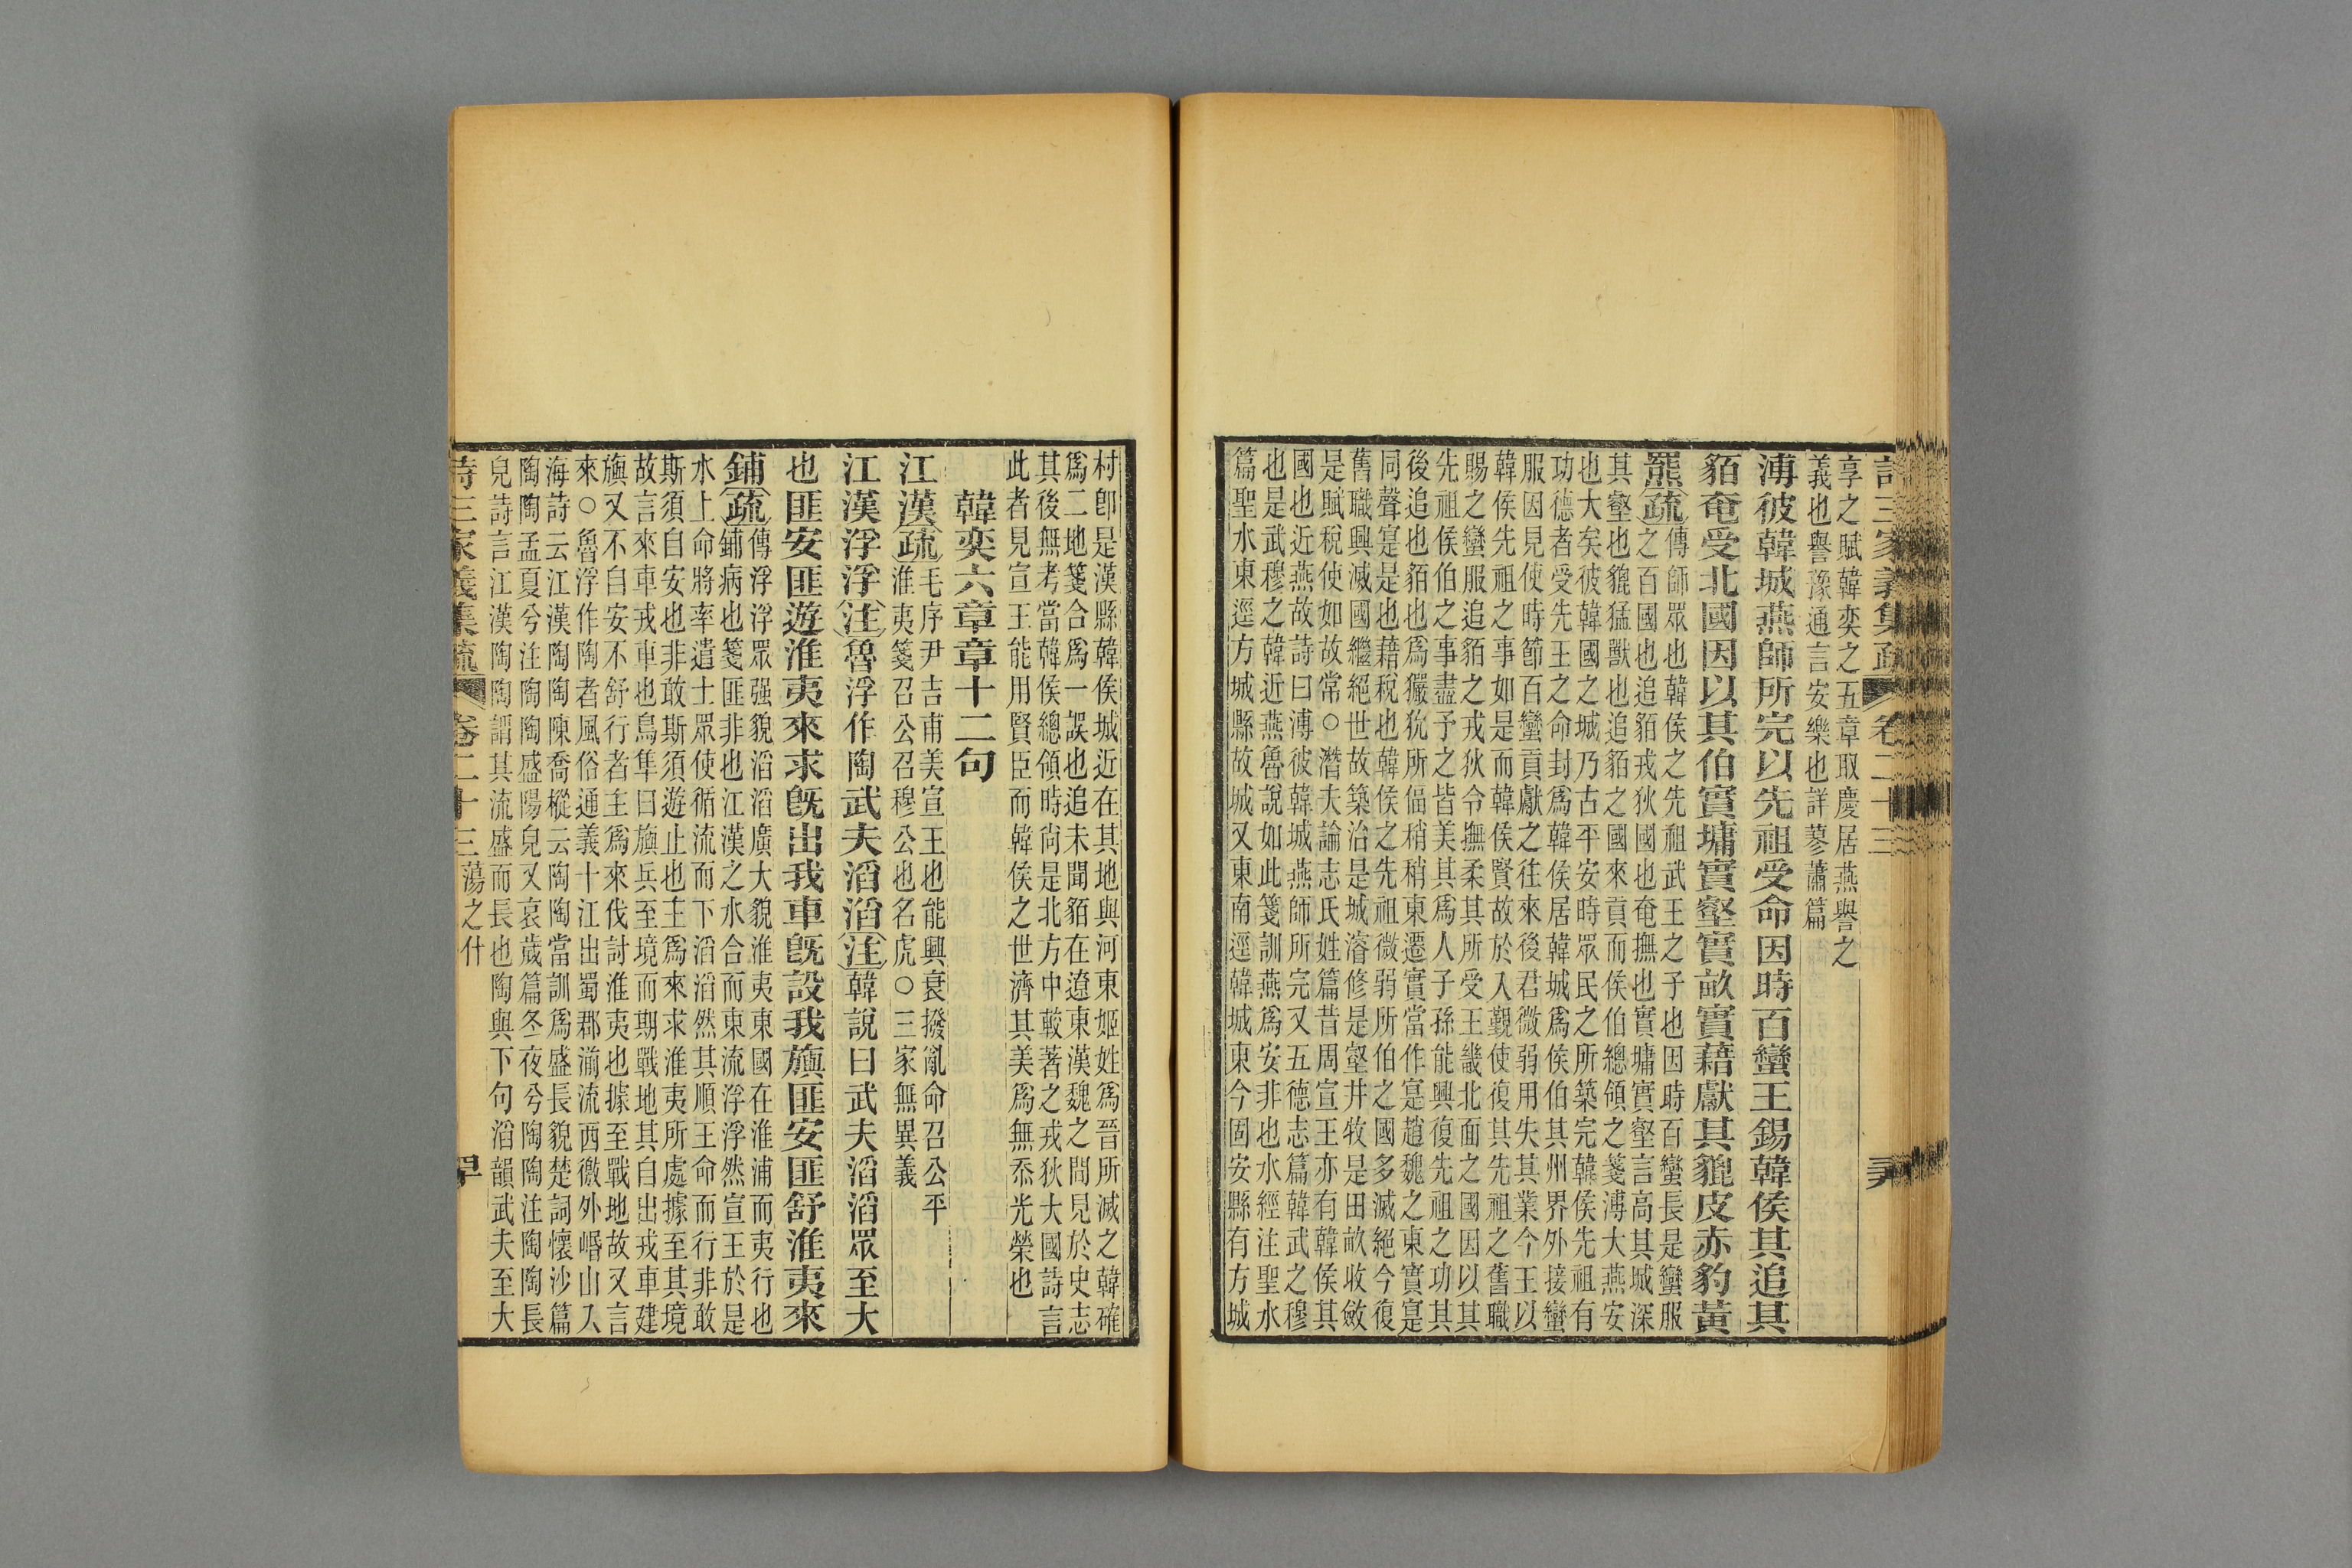 詩三家義集疏 卷二十三
享之賦韓奕之五章取慶居燕譽之
義也譽豫通言安樂也詳蓼蕭篇
溥彼韓城燕師所完以先祖受命因時百蠻王錫韓侯其追其
貊奄受北國因以其伯實墉實壑實畝實藉獻其貔皮赤豹黃
羆疏
傳師眾也韓侯之先祖武王之子也因時百蠻長是蠻服
之百國也追貊戎狄國也奄撫也實墉實壑言高其城深
其壑也貔猛獸也追貊之國來貢而侯伯總領之箋溥大燕安
也大矣彼韓國之城乃古平安時眾民之所築完韓侯先祖有
功德者受先王之命封爲韓侯居韓城爲侯伯其州界外接蠻
服因見使時節百蠻貢獻之往來後君微弱用失其業今王以
韓侯先祖之事如是而韓侯賢故於入覲使復其先祖之舊職
賜之蠻服追貊之戎狄令撫柔其所受王畿北面之國因以其
先祖侯伯之事盡予之皆美其爲人子孫能興復先祖之功其
後追也貊也爲玁狁所偪稍稍東遷實當作寔趙魏之東實寔
同聲寔是也藉稅也韓侯之先祖微弱所伯之國多滅絕今復
舊職興滅國繼絕世故築治是城濬修是壑井牧是田畝收斂
是賦稅使如故常○潛夫論志氏姓篇昔周宣王亦有韓侯其
國也近燕故詩曰溥彼韓城燕師所完又五德志篇韓武之穆
也是武穆之韓近燕魯說如此箋訓燕爲安非也水經注聖水
篇聖水東逕方城縣故城又東南逕韓城東今固安縣有方城
村卽是漢縣韓侯城近在其地與河東姬姓爲晉所滅之韓確
爲二地箋合爲一誤也追未聞貊在遼東漢魏之間見於史志
其後無考當韓侯總領時尙是北方中較著之戎狄大國詩言
此者見宣王能用賢臣而韓侯之世濟其美爲無忝光榮也
韓奕六章章十二句
江漢疏
毛序尹吉甫美宣王也能興衰撥亂命召公平
淮夷箋召公召穆公也名虎○三家無異義
江漢浮浮注魯浮作陶武夫滔滔注韓說曰武夫滔滔眾至大
也匪安匪遊淮夷來求旣出我車旣設我旟匪安匪舒淮夷來
鋪疏
傳浮浮眾强貌滔滔廣大貌淮夷東國在淮浦而夷行也
鋪病也箋匪非也江漢之水合而東流浮浮然宣王於是
水上命將率遣士眾使循流而下滔滔然其順王命而行非敢
斯須自安也非敢斯須遊止也主爲來求淮夷所處據至其境
故言來車戎車也鳥隼曰旟兵至境而期戰地其自出戎車建
旟又不自安不舒行者主爲來伐討淮夷也據至戰地故又言
來○魯浮作陶者風俗通義十江出蜀郡湔流西徼外崏山入
海詩云江漢陶陶陳喬樅云陶陶當訓爲盛長貌楚詞懷沙篇
陶陶孟夏兮注陶陶盛陽皃又哀歲篇冬夜兮陶陶注陶陶長
皃詩言江漢陶陶謂其流盛而長也陶與下句滔韻武夫至大
詩三家義集疏 卷二十三 蕩之什